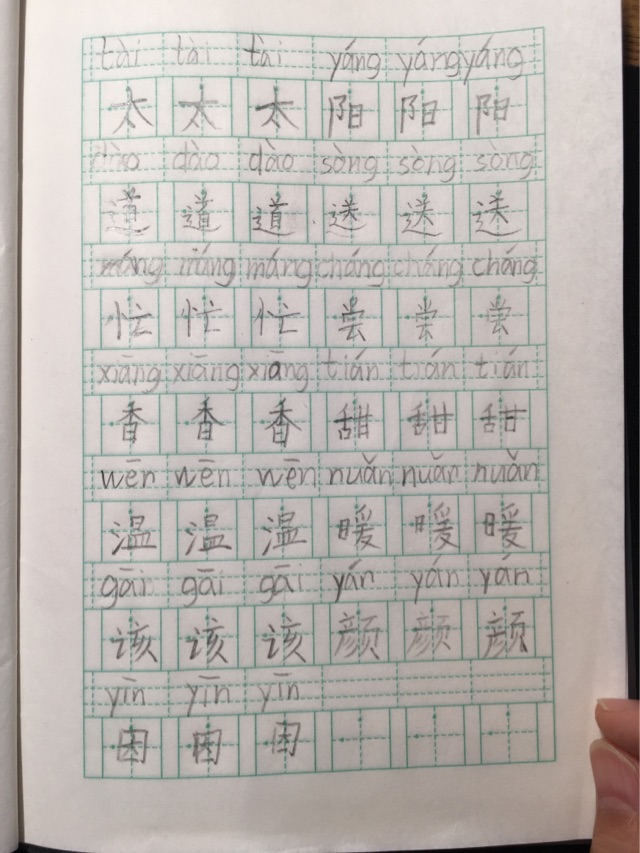 tài tài tài yáng yáng yáng
太 太 太 阳 阳 阳
dào dào dào sòng sòng sòng
道 道 道 送 送 送
máng máng máng cháng cháng cháng
忙 忙 忙 尝 尝 尝
xiāng xiāng xiāng tián tián tián
香 香 香 甜 甜 甜
wēn wēn wēn nuǎn nuǎn nuǎn
温 温 温 暖 暖 暖
gāi gāi gāi yán yán yán
该 该 该 颜 颜 颜
yīn yīn yīn
因 因 因